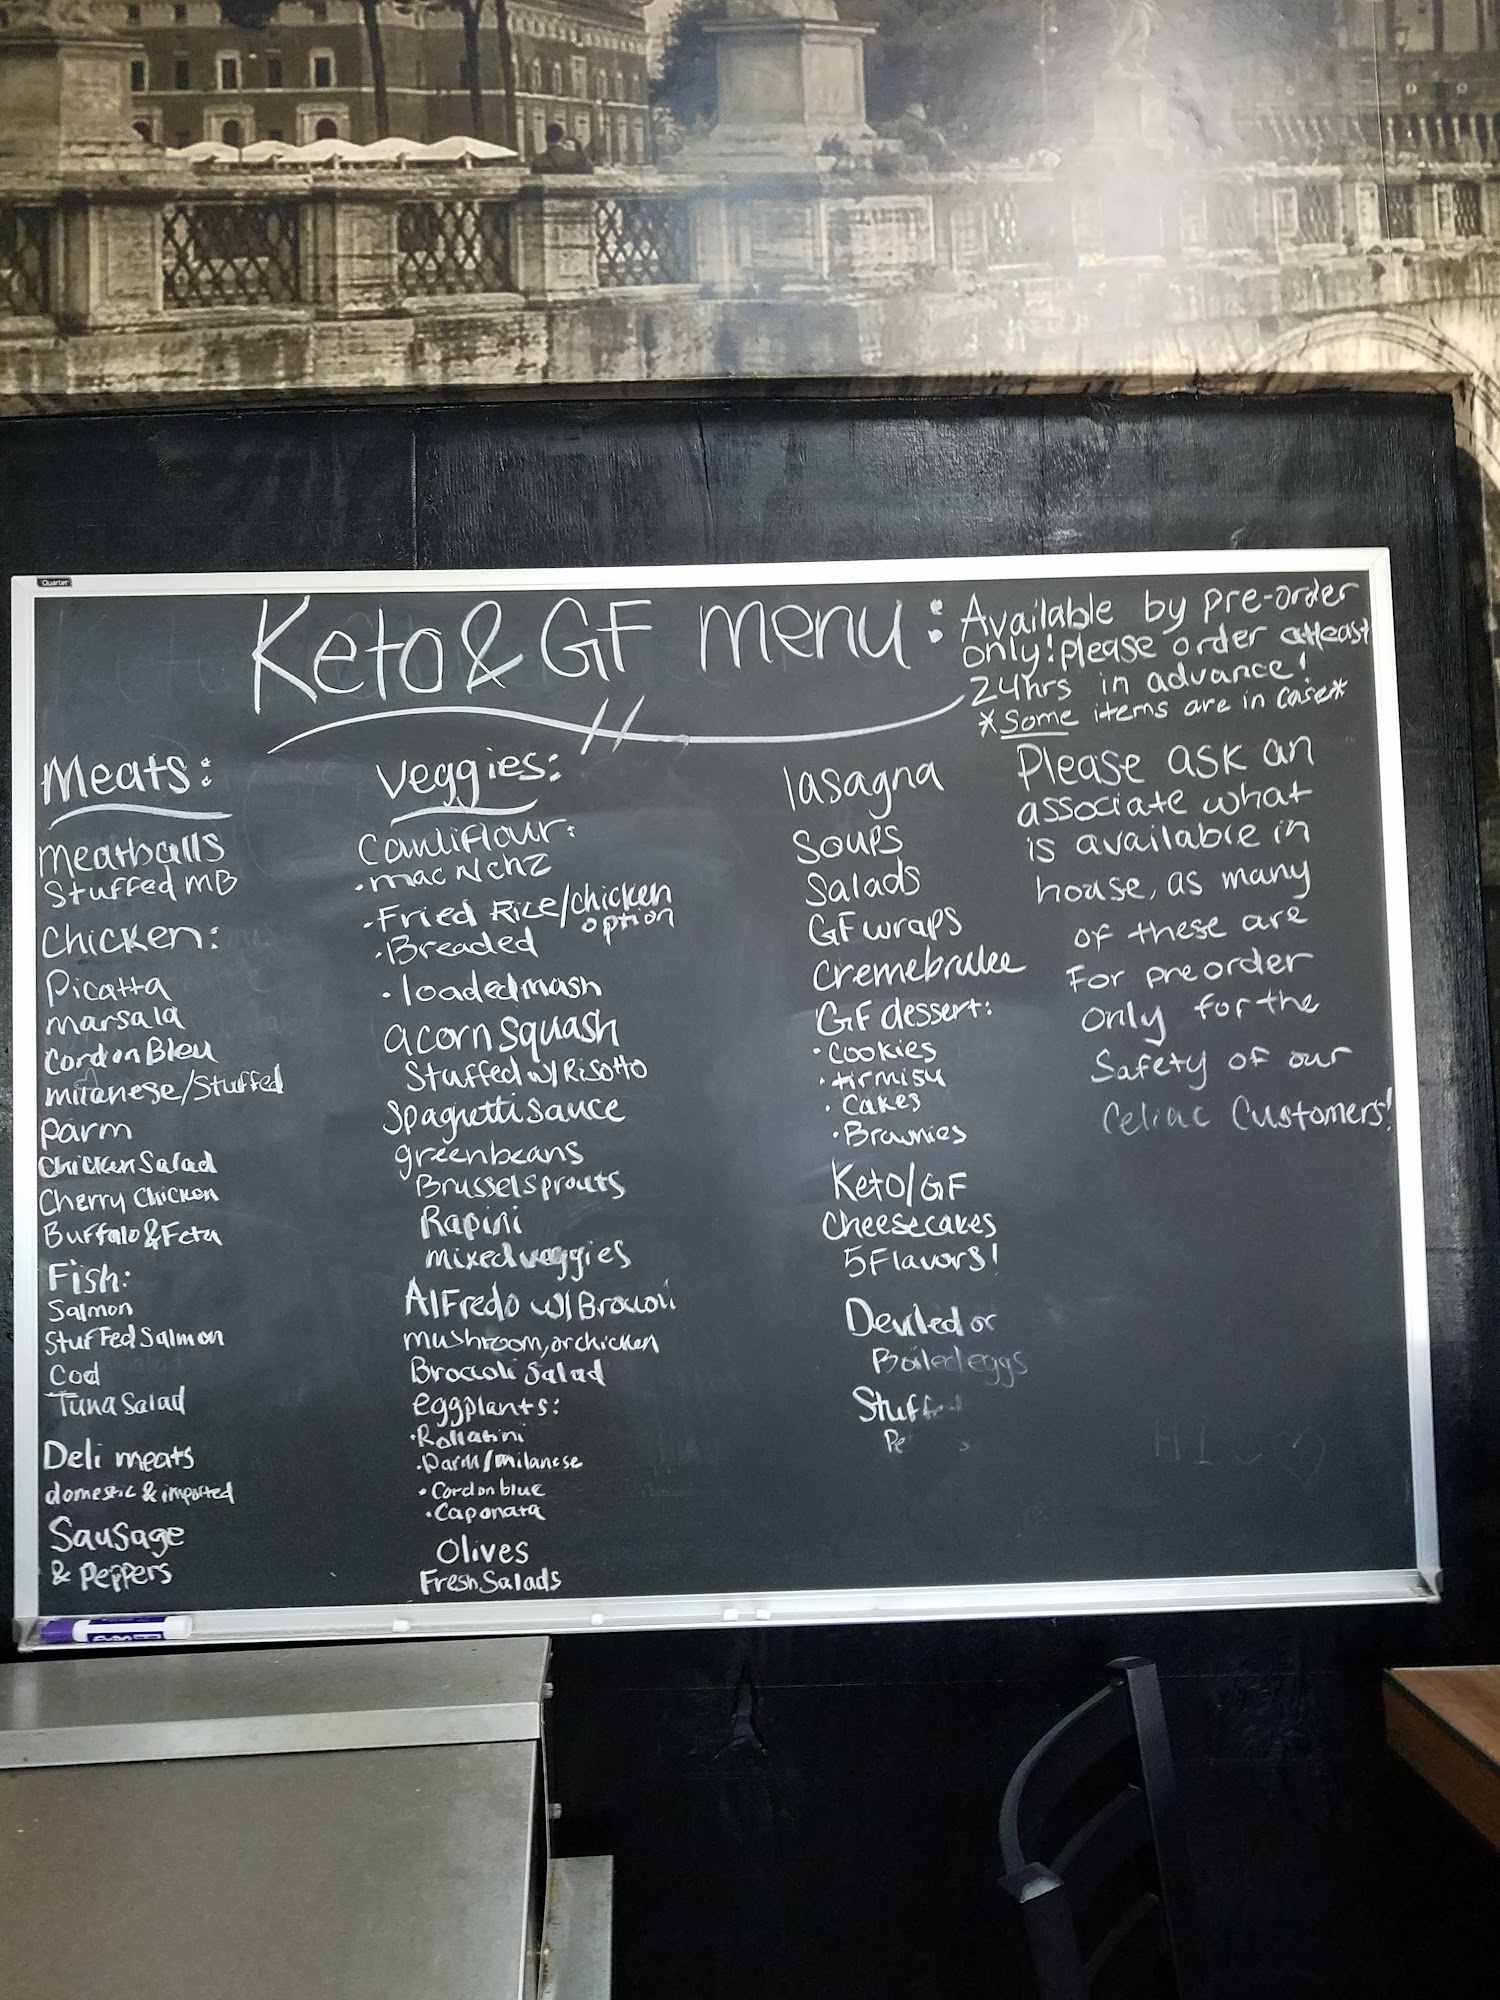 Quartet
Keto & GF menu:
Available by pre-order
only! please order atleast
24hrs in advance!
*Some items are in case*
Meats:
meatballs
Stuffed MB
Chicken:
Picatta
marsala
Cordon Bleu
milanese/Stuffed
parm
Chicken Salad
Cherry Chicken
Buffalo & Feta
Fish:
Salmon
Stuffed Salmon
Cod
Tuna Salad
Deli meats
domestic & imported
Sausage
& Peppers
Veggies:
Cauliflour:
• mac N chz
• Fried Rice/chicken
option
• Breaded
• loaded mash
acorn squash
Stuffed w/ Risotto
Spaghetti sauce
greenbeans
Brussel sprouts
Rapini
mixed veggies
AlFredo w/ Broccoli
mushroom, or chicken
Broccoli Salad
eggplants:
• Rollatini
• parm/milanese
• Cordon blue
• Caponata
Olives
Fresh Salads
lasagna
Soups
Salads
GF wraps
Cremebrulee
GF dessert:
• Cookies
• tirmisu
• Cakes
• Brownies
Keto/GF
Cheesecakes
5 Flavors!
Deviled or
Boiled eggs
Stuffed
Please ask an
associate what
is available in
house, as many
of these are
For preorder
only for the
Safety of our
Celiac Customers!
HI